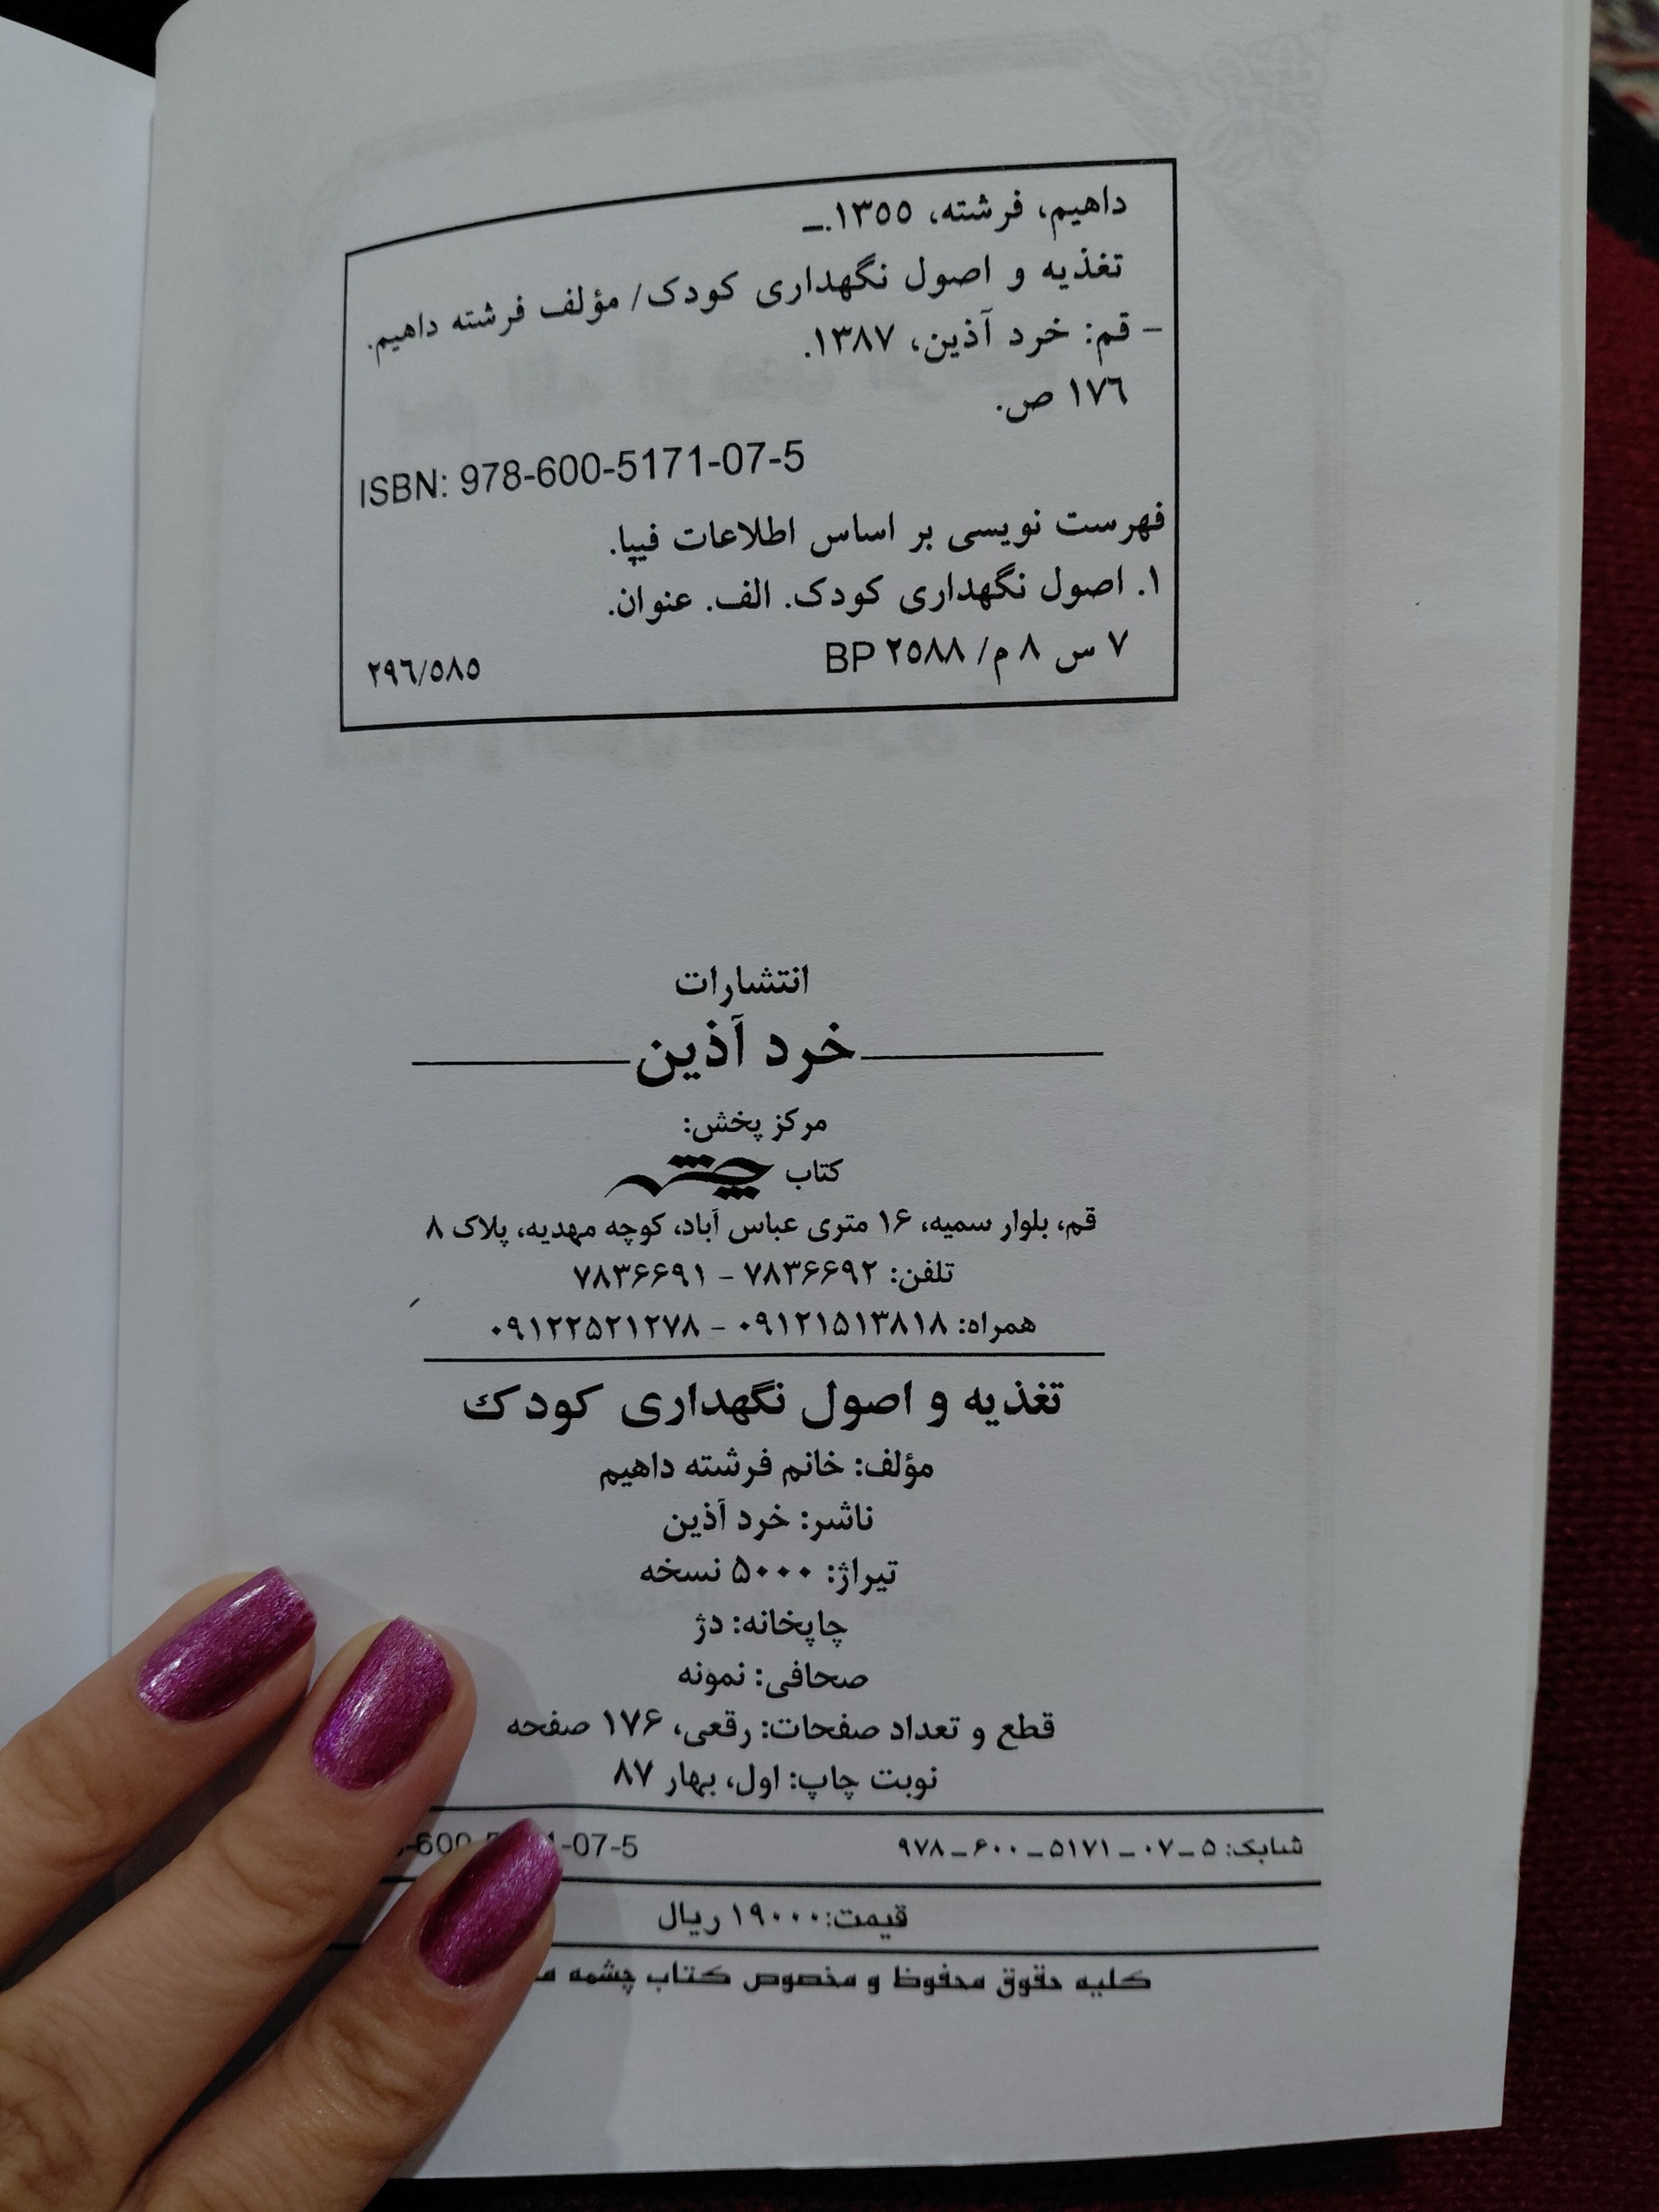 داهیم، فرشته، ۱۳۵۵.ـ
تغذیه و اصول نگهداری کودک/ مؤلف فرشته داهیم.
– قم: خرد آذین، ۱۳۸۷.
۱۷٦ ص.
ISBN: 978-600-5171-07-5
فهرست نویسی بر اساس اطلاعات فیپا.
۱. اصول نگهداری کودک. الف. عنوان.
۷ س ۸ م/ BP ۲۵۸۸
۲۹٦/۵۸۵
انتشارات
خرد آذین
مرکز پخش:
کتاب
قم، بلوار سمیه، ۱۶ متری عباس آباد، کوچه مهدیه، پلاک ۸
تلفن: ۷۸۳۶۶۹۲ - ۷۸۳۶۶۹۱
همراه: ۰۹۱۲۱۵۱۳۸۱۸ - ۰۹۱۲۲۵۲۱۲۷۸
تغذیه و اصول نگهداری کودک
مؤلف: خانم فرشته داهیم
ناشر: خرد آذین
تیراژ: ۵۰۰۰ نسخه
چاپخانه: دژ
صحافی: نمونه
قطع و تعداد صفحات: رقعی، ۱۷۶ صفحه
نوبت چاپ: اول، بهار ۸۷
شابک: ۵ـ۰۷ـ۵۱۷۱ـ۶۰۰ـ۹۷۸
-07-5
قیمت:۱۹۰۰۰ ریال
کلیه حقوق محفوظ و مخصوص کتاب چشمه